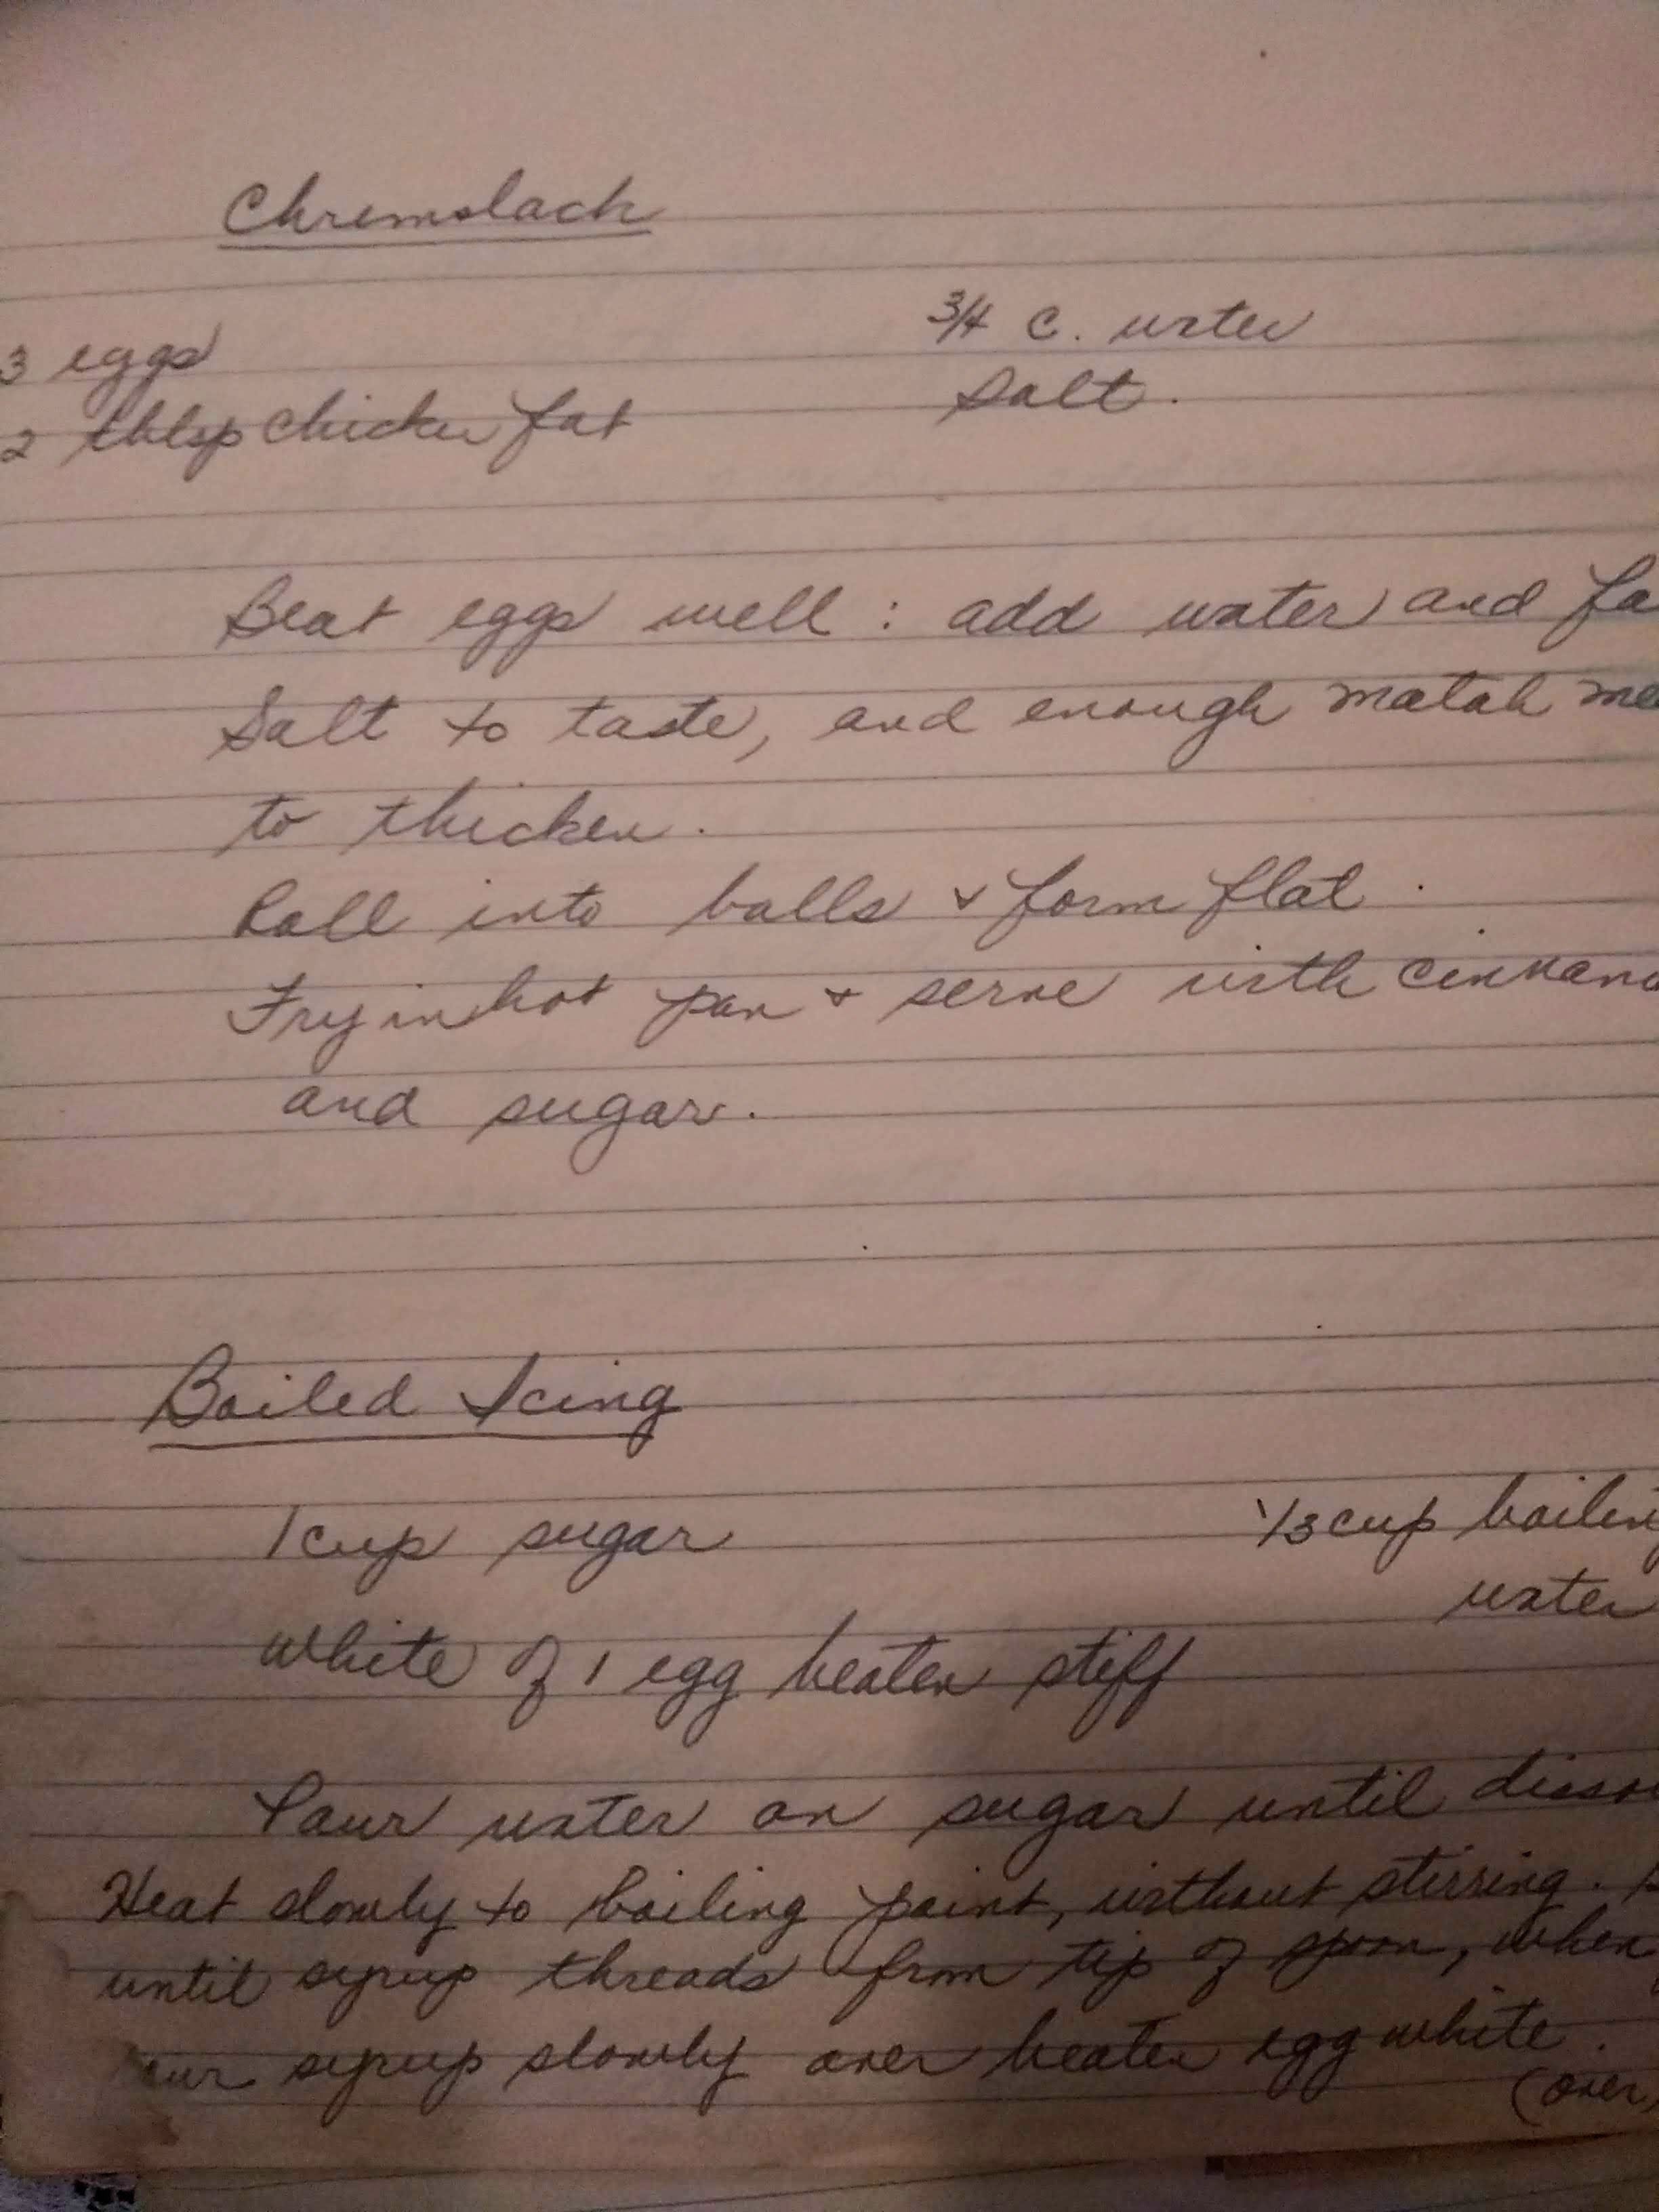 Chremslach
3 eggs
3/4 c. water
2 tblsp chicken fat
Salt.
Beat eggs well: add water and fa
Salt to taste, and enough matah me
to thicken.
Roll into balls & form flat.
Fry in hot pan + serve with cinnamo
and sugar.
Boiled Icing
1 cup sugar
1/3 cup boilin
water
White of 1 egg beaten stiff
Pour water on sugar until disso
Heat slowly to boiling point, without stirring.
until syrup threads from tip of spoon, when
our syrup slowly over beaten egg white.
(over)